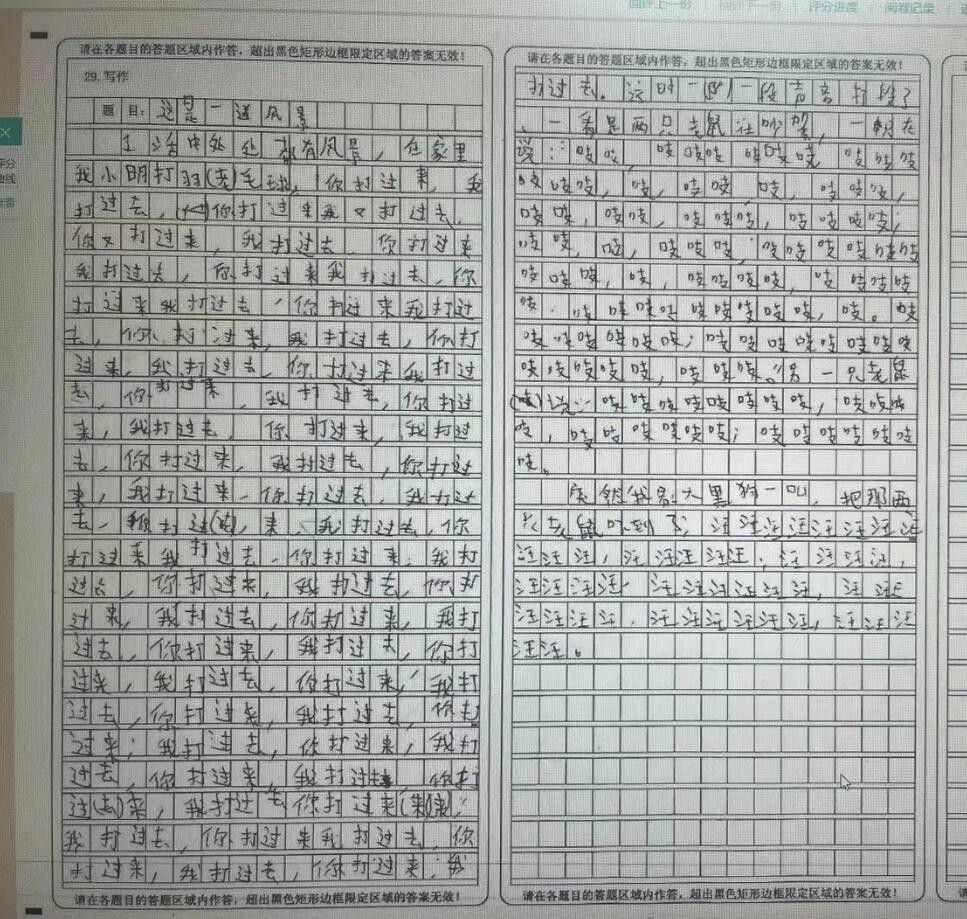 回评上一份 回评下一份 评分进度 阅卷记录
请在各题目的答题区域内作答，超出黑色矩形边框限定区域的答案无效！
29. 写作
题目：这是一道风景
生活中处处都有风景，在家里
我小明打羽(老)毛球，你打过来，我
打过去，你打过来我又打过去，
你又打过来，我打过去，你打过来
我打过去，你打过来我打过去，你
打过来我打过去，你打过来我打过
去，你打过来，我打过去，你打
过来，我打过去，你打过来我打过
去，你打过来，我打过去，你打过
来，我打过去，你打过来，我打过
去，你打过来，我打过去，你打过
来，我打过来，你打过去，我打过
去，你打过(去)，来，我打过去，你
打过来我打过去，你打过来；我打
过去，你打过来，我打过去，你打
过来，我打过去，你打过来，我打
过去，你打过来，我打过去，你打
过来，我打过去，你打过来，我打
过去，你打过来，我打过去，你打
过来；我打过去，你打过来，我打
过去，你打过来，我打过去，你打
过(去)来，我打过去你打过来(来)(来)；
我打过去，你打过来我打过去，你
打过来，我打过去，你打过来；我
请在各题目的答题区域内作答，超出黑色矩形边框限定区域的答案无效！
请在各题目的答题区域内作答，超出黑色矩形边框限定区域的答案无效！
打过去。这时一段声音打段了
，一看是两只老鼠在吵架，一只在
说：：吱吱，吱吱吱，吱吱吱，吱吱吱
吱吱吱，吱，吱吱，吱，吱吱吱，
吱吱，吱吱，吱吱吱，吱吱吱吱；
吱吱，吱，吱吱吱；吱吱吱吱吱吱
吱吱吱，吱，吱吱吱吱，吱吱吱吱
吱．吱吱吱吱吱吱吱吱吱，吱。吱
吱吱吱吱吱吱；吱吱吱吱吱吱吱
吱吱吱吱吱，吱吱吱。”另一只老鼠
(吱)说：：吱吱吱吱吱吱吱吱，吱吱吱
吱，吱吱吱吱吱吱；吱吱吱吱吱吱
吱。
突然我家大黑狗一叫，把那两
只老鼠吓到了；汪汪汪汪汪汪汪汪
汪汪汪，汪汪汪汪；汪汪汪汪，
汪汪汪汪汪，汪汪汪汪汪汪，汪汪
汪汪汪汪，汪汪汪汪汪汪，汪汪汪
汪汪。
请在各题目的答题区域内作答，超出黑色矩形边框限定区域的答案无效！